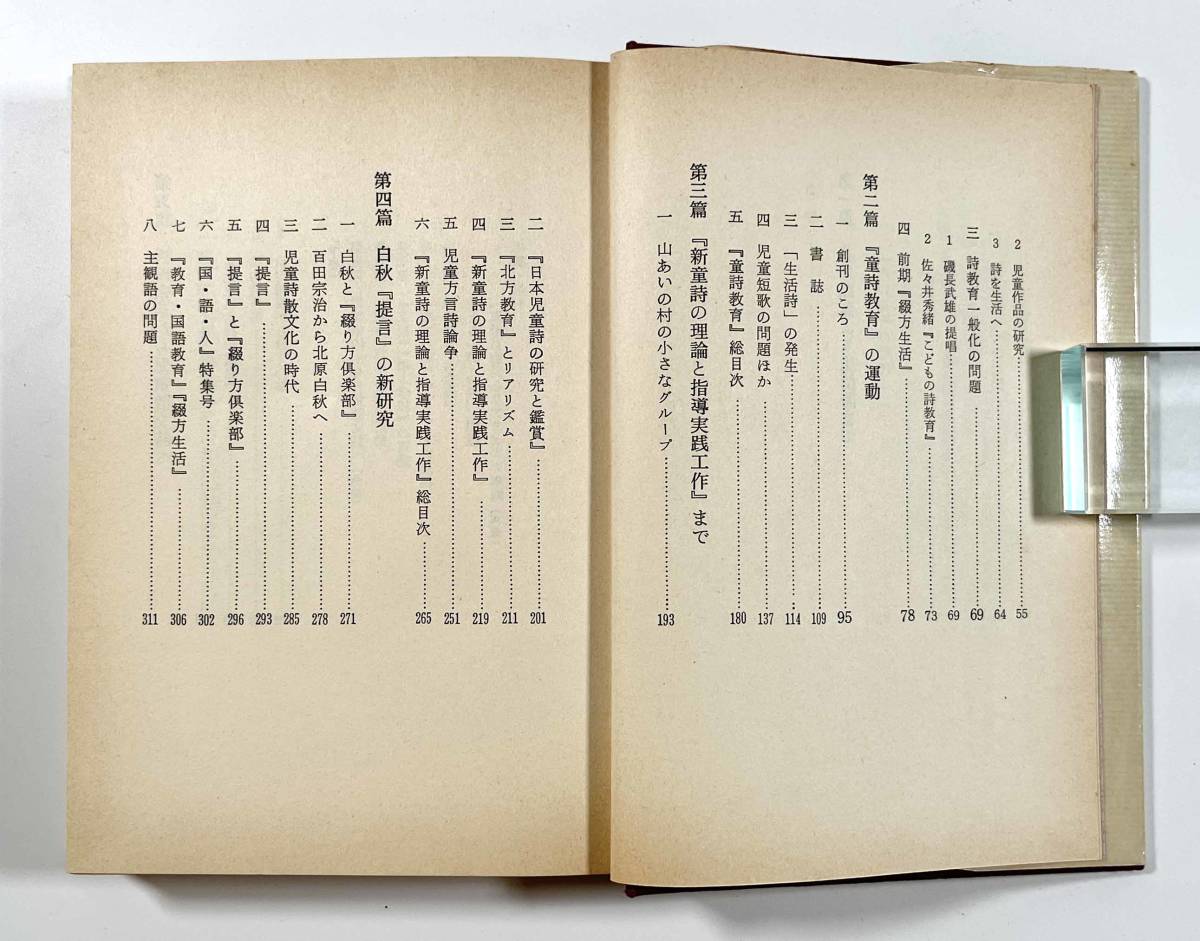 2　児童作品の研究……………55
3　詩を生活へ……………64
三　詩教育一般化の問題……………69
1　磯長武雄の提唱……………69
2　佐々井秀緒『こどもの詩教育』……………73
四　前期『綴方生活』……………78
第二篇　『童詩教育』の運動
一　創刊のころ……………95
二　書誌……………109
三　「生活詩」の発生……………114
四　児童短歌の問題ほか……………137
五　『童詩教育』総目次……………180
第三篇　『新童詩の理論と指導実践工作』まで
一　山あいの村の小さなグループ……………193
二　『日本児童詩の研究と鑑賞』……………201
三　『北方教育』とリアリズム……………211
四　『新童詩の理論と指導実践工作』……………219
五　児童方言詩論争……………251
六　『新童詩の理論と指導実践工作』総目次……………265
第四篇　白秋『提言』の新研究
一　白秋と『綴り方倶楽部』……………271
二　百田宗治から北原白秋へ……………278
三　児童詩散文化の時代……………285
四　『提言』……………293
五　『提言』と『綴り方倶楽部』……………296
六　『国・語・人』特集号……………302
七　『教育・国語教育』『綴方生活』……………306
八　主観語の問題……………311